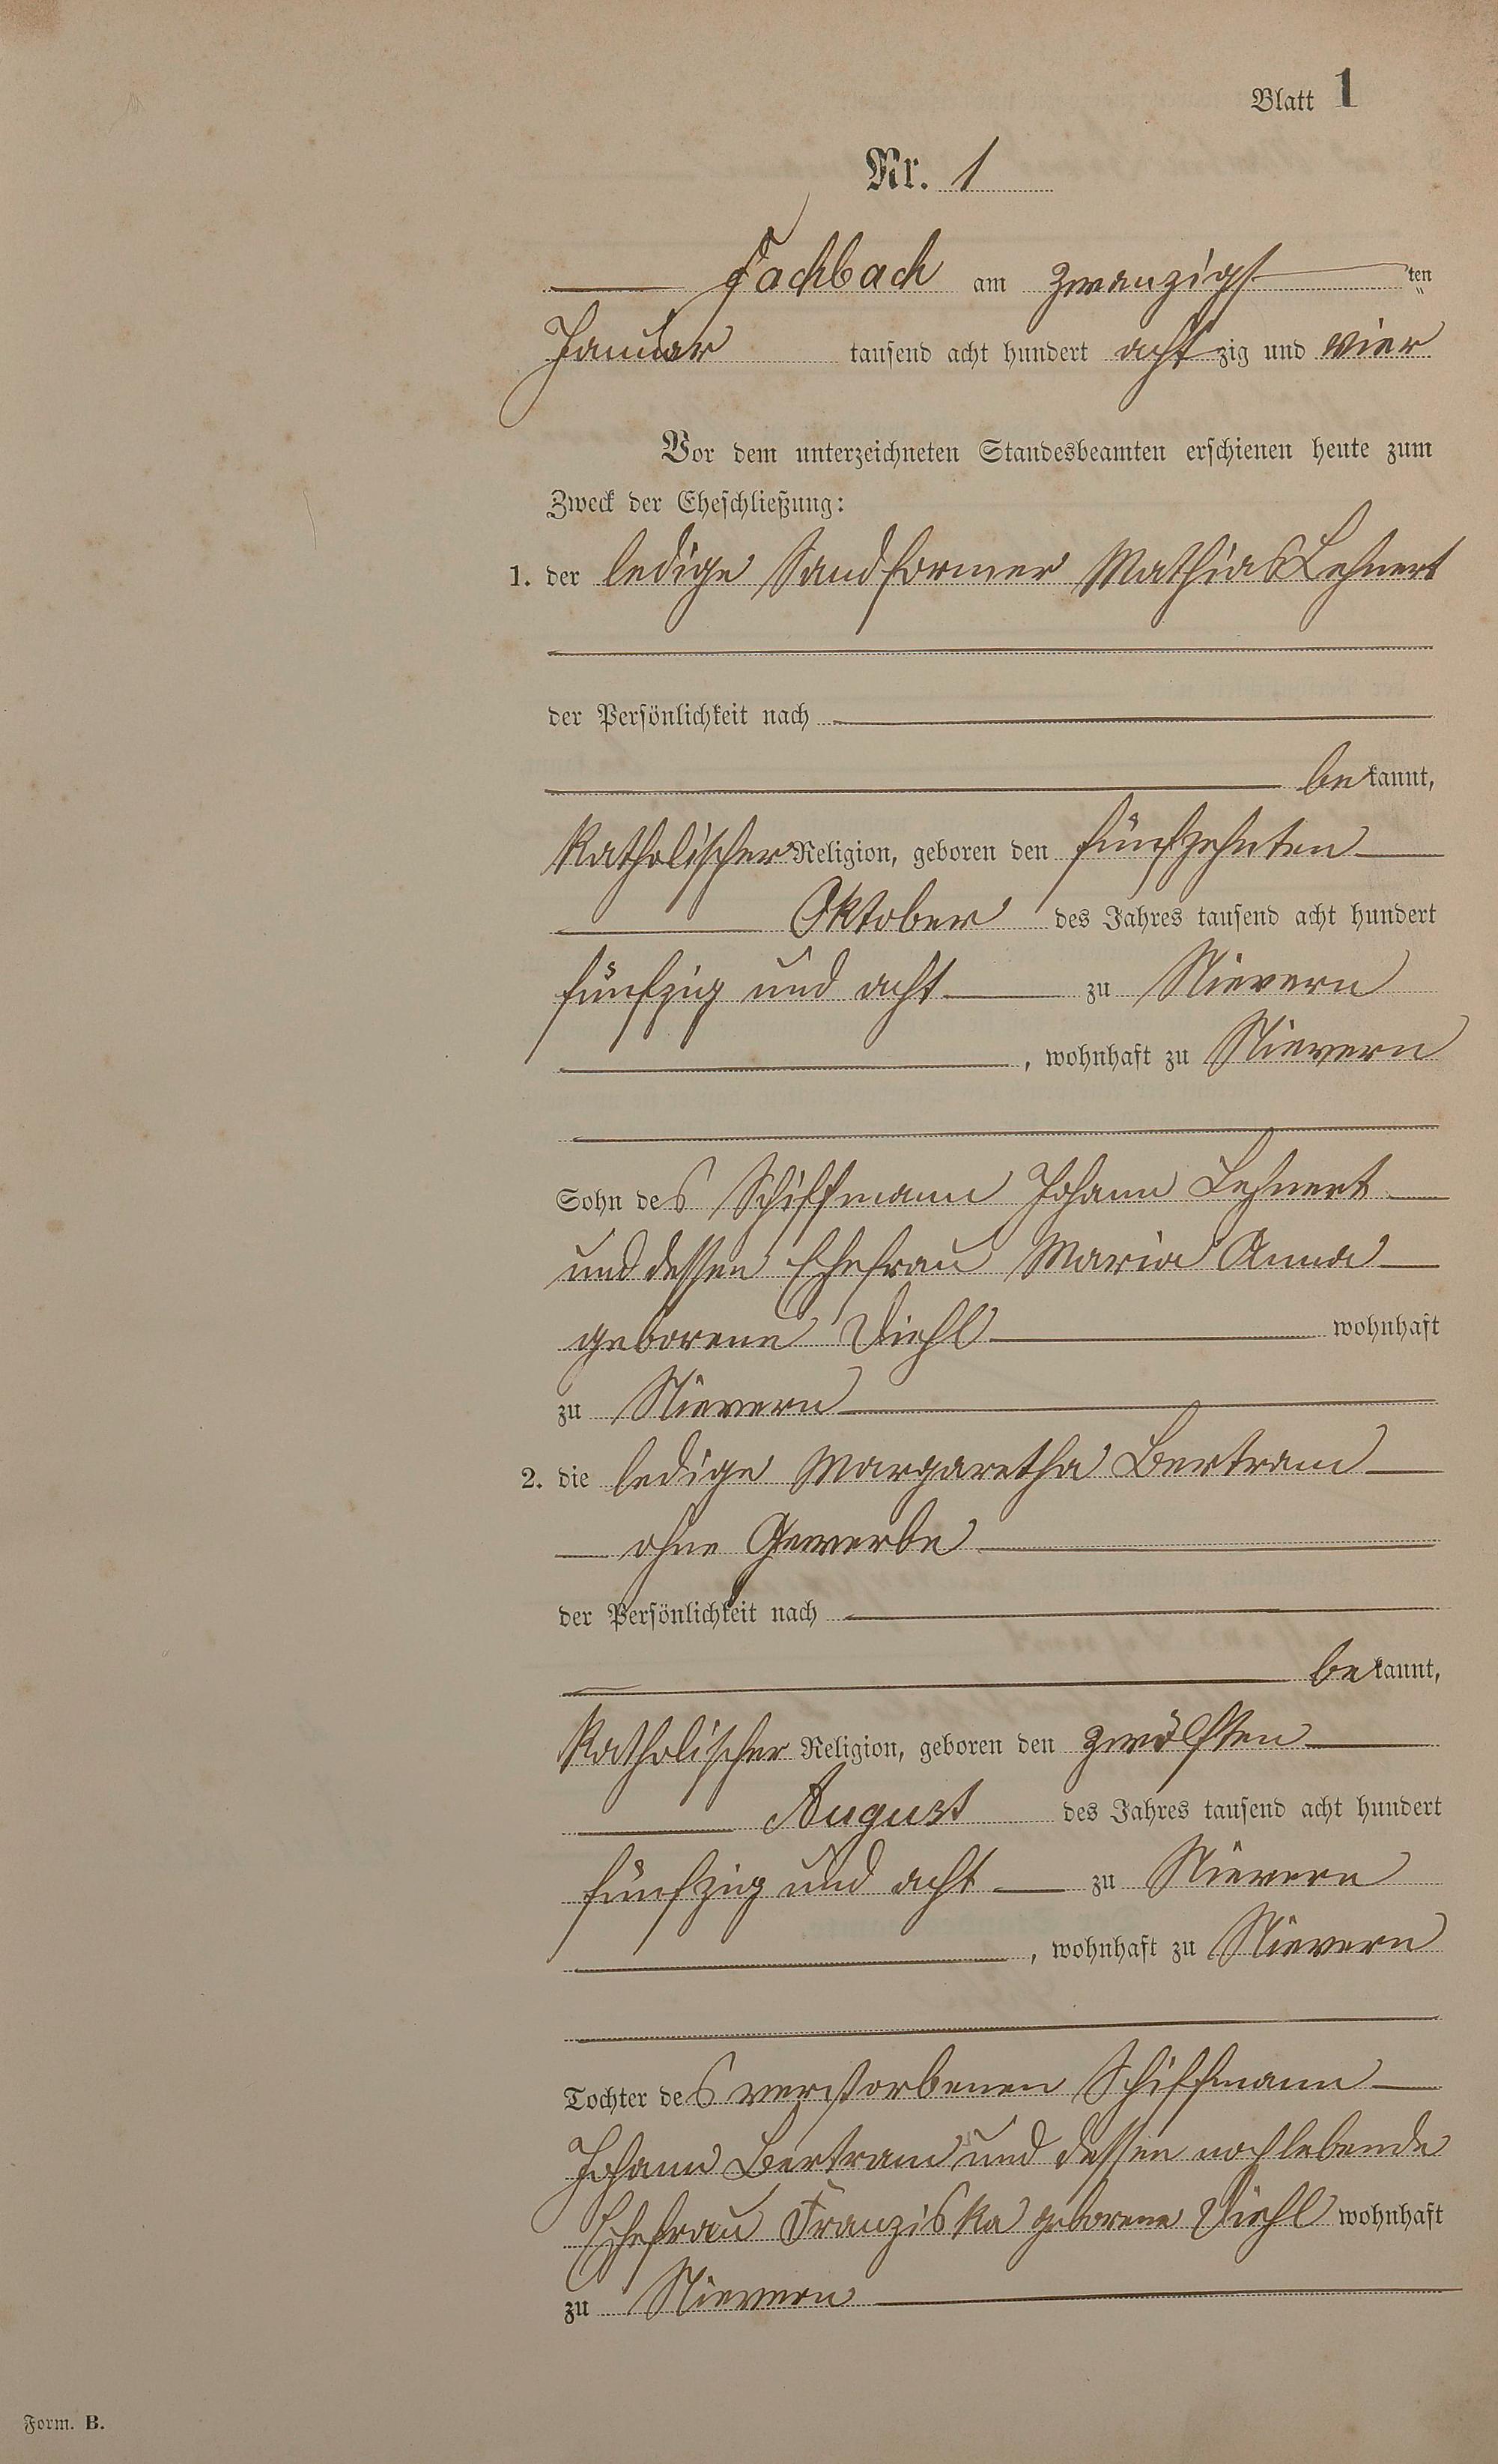 Blatt 1
Nr. 1
Fachbach am zwanzigst ten
Januar tausend acht hundert achtzig und vier
Vor dem unterzeichneten Standesbeamten erschienen heute zum
Zweck der Eheschließung:
1. der ledige Sandformer Mathias Lehnert
der Persönlichkeit nach
bekannt,
Katholischer Religion, geboren den fünfzehnten
Oktober des Jahres tausend acht hundert
fünfzig und acht zu Nievern
, wohnhaft zu Nievern
Sohn des Schiffmann Johann Lehnert
und dessen Ehefrau Maria Anna
geborene Diehl wohnhaft
zu Nievern
2. die ledige Margaretha Bertram
ohne Gewerbe
der Persönlichkeit nach
bekannt,
Katholischer Religion, geboren den zwölften
August des Jahres tausend acht hundert
fünfzig und acht zu Nievern
, wohnhaft zu Nievern
Tochter des verstorbenen Schiffmann
Johann Bertram und dessen noch lebende
Ehefrau Franziska geborene Diehl wohnhaft
zu Nievern
Form. B.